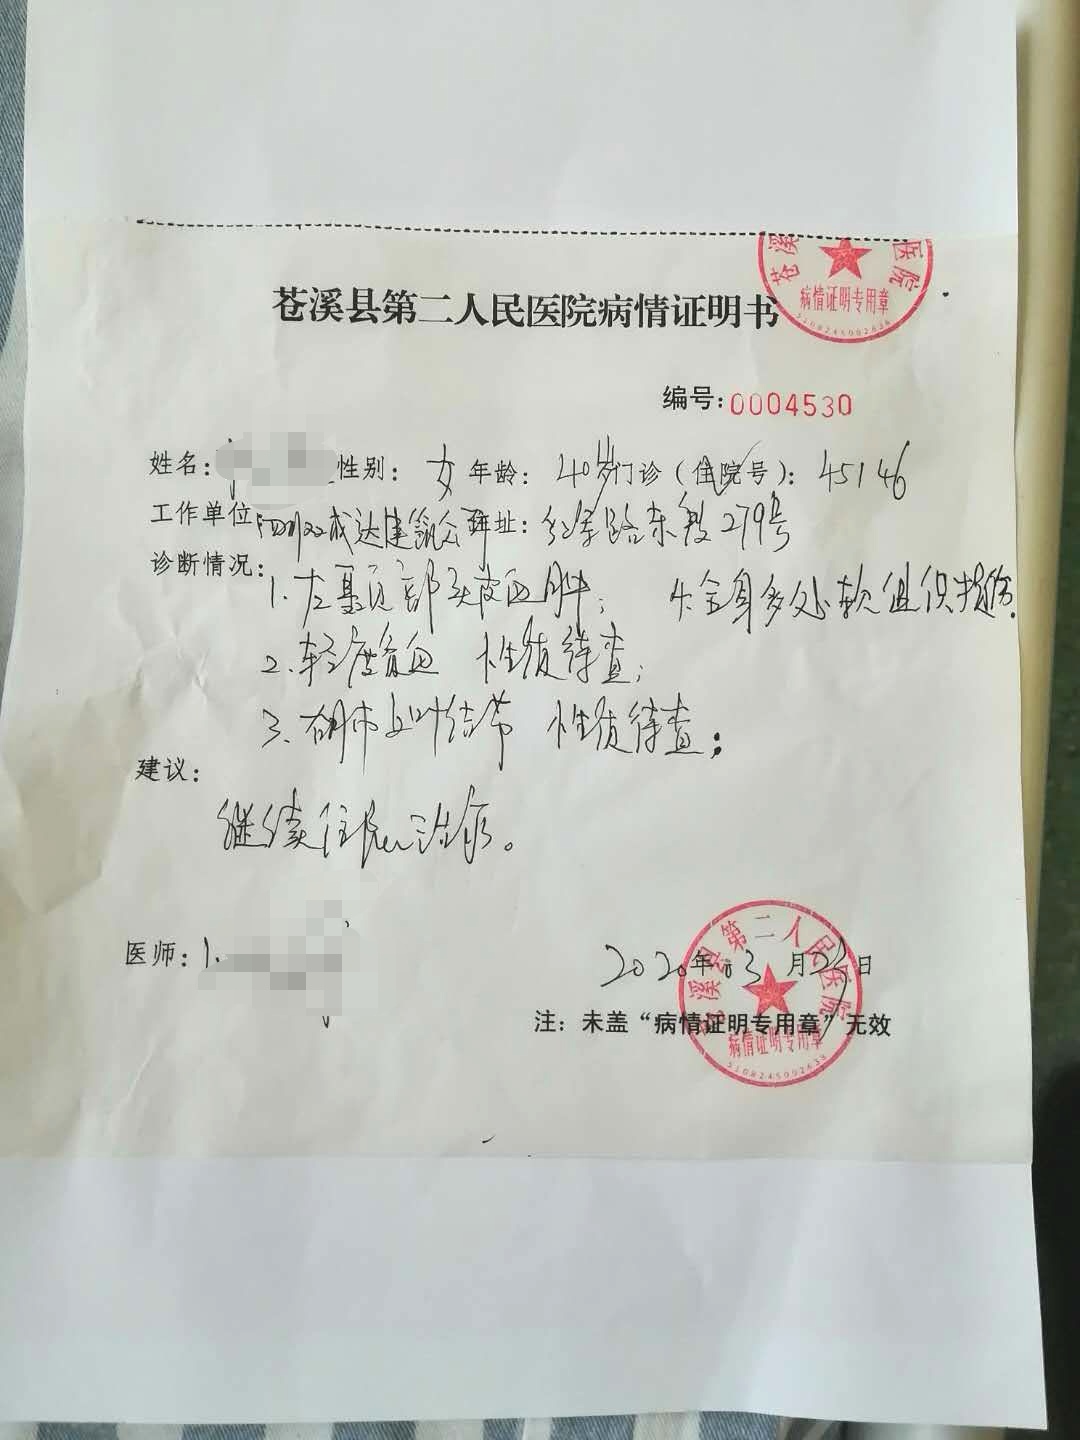 苍溪 医院
病情证明专用章
5108245002638
苍溪县第二人民医院病情证明书
编号:0004530
姓名: 性别: 女 年龄: 40岁 门诊(住院号): 45146
工作单位: 四川 成达建筑公司 址: 红军路东段279号
诊断情况:
1. 左 顶部头皮血肿; 4. 全身多处软组织损伤.
2. 轻度贫血 性质待查;
3. 右肺 叶结节 性质待查;
建议:
继续住院治疗。
医师:
2020年03月 日
注: 未盖“病情证明专用章”无效
苍溪县第二人民医院
病情证明专用章
5108245002638